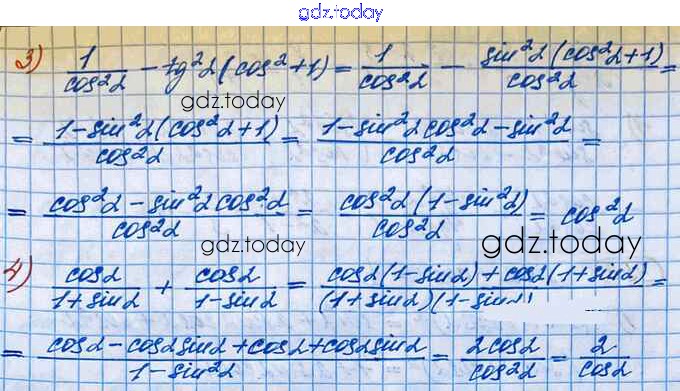 gdz.today
3) 1/cos²α − tg²α(cos²+1) = 1/cos²α − sin²α(cos²α+1)/cos²α =
gdz.today
= 1−sin²α(cos²α+1)/cos²α = 1−sin²α cos²α−sin²α/cos²α =
= cos²α − sin²α cos²α/cos²α = cos²α(1−sin²α)/cos²α = cos²α
gdz.today
gdz.today
4) cosα/1+sinα + cosα/1−sinα = cosα(1−sinα)+cosα(1+sinα)/(1+sinα)(1−sin =
= cosα−cosα sinα+cosα+cosα sinα/1−sin²α = 2cosα/cos²α = 2/cosα